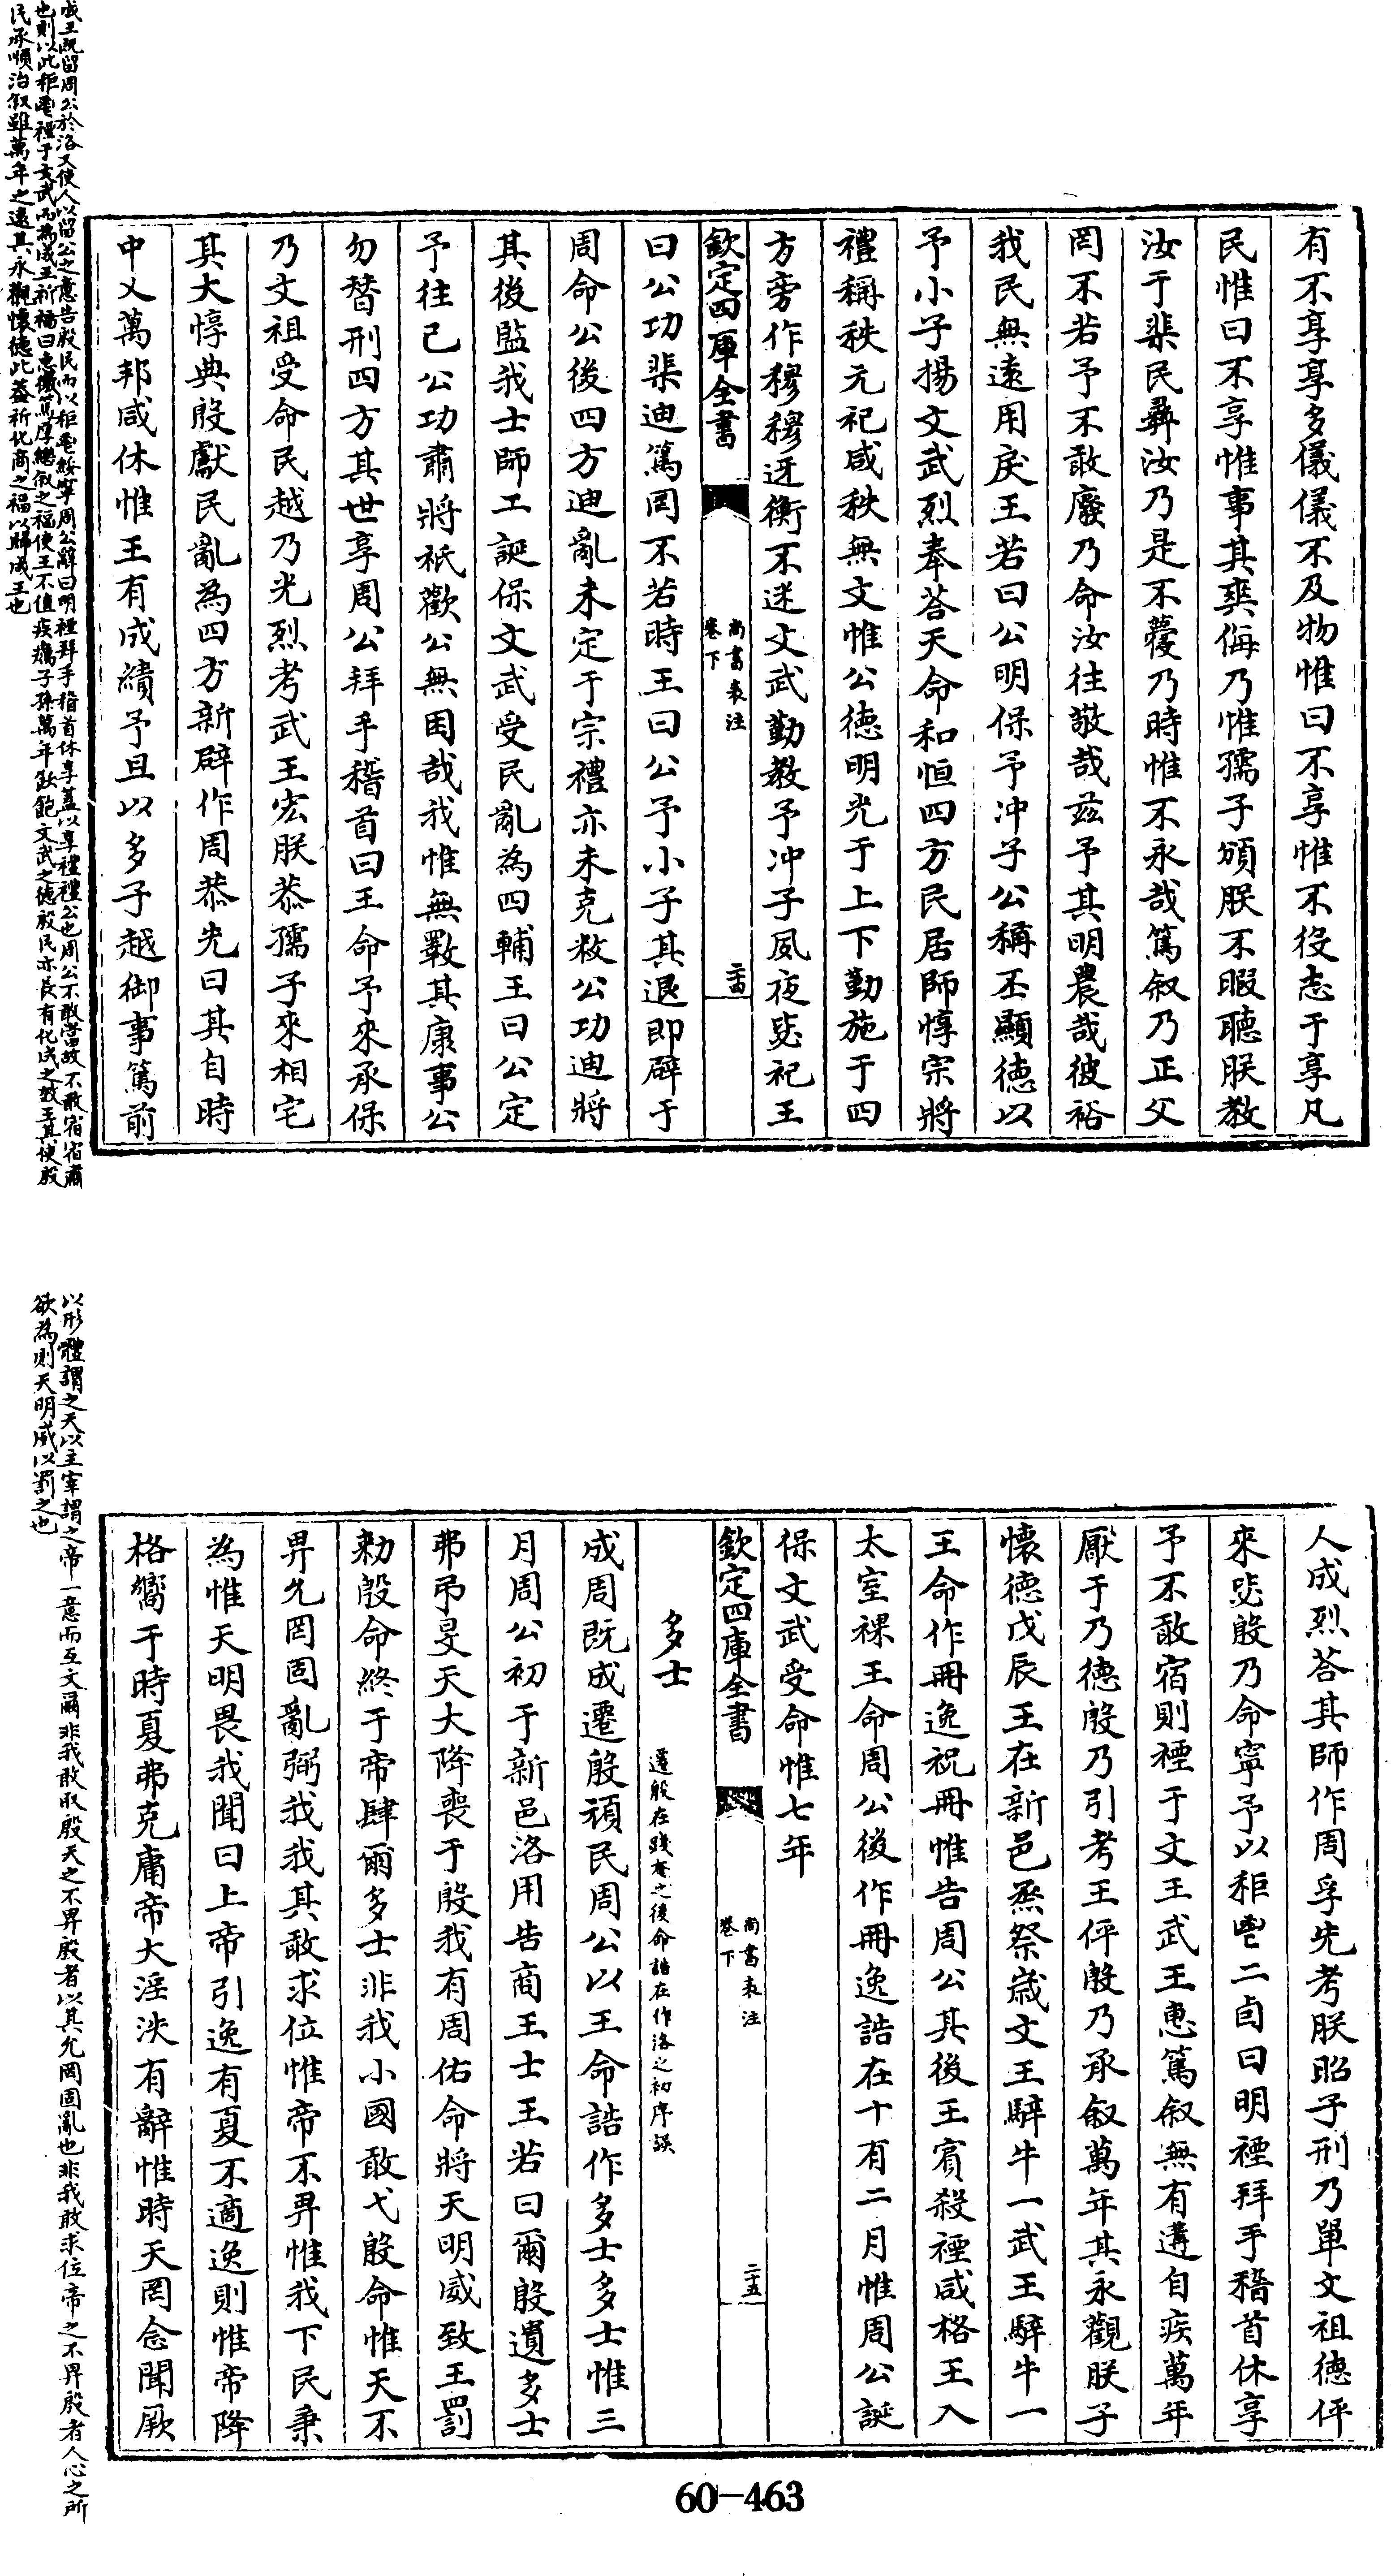 有不享享多儀儀不及物惟曰不享惟不役志于享凡
民惟曰不享惟事其爽侮乃惟孺子頒朕不暇聽朕教
汝于棐民彝汝乃是不蘉乃時惟不永哉篤叙乃正父
罔不若予不敢廢乃命汝往敬哉兹予其明農哉彼裕
我民無遠用戾王若曰公明保予冲子公稱丕顯徳以
予小子揚文武烈奉荅天命和恒四方民居師惇宗將
禮稱秩元祀咸秩無文惟公徳明光于上下勤施于四
方旁作穆穆迓衡不迷文武勤教予冲子夙夜毖祀王
欽定四庫全書
尚書表注
卷下
二十四
曰公功棐迪篤罔不若時王曰公予小子其退即辟于
周命公後四方迪亂未定于宗禮亦未克敉公功迪將
其後監我士師工誕保文武受民亂為四輔王曰公定
予往已公功肅將祇歡公無困哉我惟無斁其康事公
勿替刑四方其世享周公拜手稽首曰王命予來承保
乃文祖受命民越乃光烈考武王宏朕恭孺子來相宅
其大惇典殷獻民亂為四方新辟作周恭先曰其自時
中乂萬邦咸休惟王有成績予旦以多子越御事篤前
成王既留周公於洛又使人以留公之意告殷民而以秬鬯綏寧周公辭曰明禋拜手稽首休享蓋以享禮禮公也周公不敢當故不敢宿宿肅
也則以此秬鬯禋于文武而為成王祈福曰惠徼篤厚繼叙之福使王不值疾癘子孫萬年飲飽文武之徳殷民亦長有化成之效王其使殷
民承順治叙雖萬年之遠其永觀懷徳此蓋祈化商之福以歸成王也
人成烈荅其師作周孚先考朕昭子刑乃單文祖徳伻
來毖殷乃命寧予以秬鬯二卣曰明禋拜手稽首休享
予不敢宿則禋于文王武王惠篤叙無有遘自疾萬年
厭于乃徳殷乃引考王伻殷乃承叙萬年其永觀朕子
懷徳戊辰王在新邑烝祭歲文王騂牛一武王騂牛一
王命作冊逸祝冊惟告周公其後王賓殺禋咸格王入
太室祼王命周公後作冊逸誥在十有二月惟周公誕
保文武受命惟七年
欽定四庫全書
尚書表注
卷下
二十五
多士
遷殷在踐奄之後命誥在作洛之初序誤
成周既成遷殷頑民周公以王命誥作多士多士惟三
月周公初于新邑洛用告商王士王若曰爾殷遺多士
弗弔旻天大降喪于殷我有周佑命將天明威致王罰
勅殷命終于帝肆爾多士非我小國敢弋殷命惟天不
畀允罔固亂弼我我其敢求位惟帝不畀惟我下民秉
為惟天明畏我聞曰上帝引逸有夏不適逸則惟帝降
格嚮于時夏弗克庸帝大淫泆有辭惟時天罔念聞厥
以形體謂之天以主宰謂之帝一意而互文爾非我敢取殷天之不畀殷者以其允罔固亂也非我敢求位帝之不畀殷者人心之所
欲為則天明威以罰之也
60-463